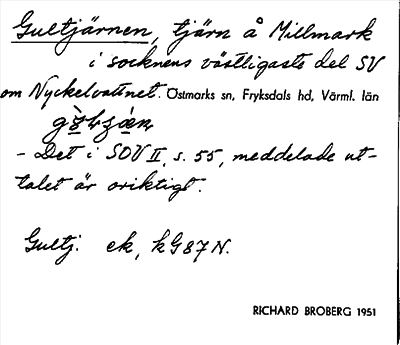 Gultjärnen, tjärn å Millmark
i socknens västligaste del SV
om Nyckelvattnet. Östmarks sn, Fryksdals hd, Värml. län
- Det i SOV II, s. 55, meddelade ut-
talet är oriktigt.
Gultj. ek, kG87N.
RICHARD BROBERG 1951